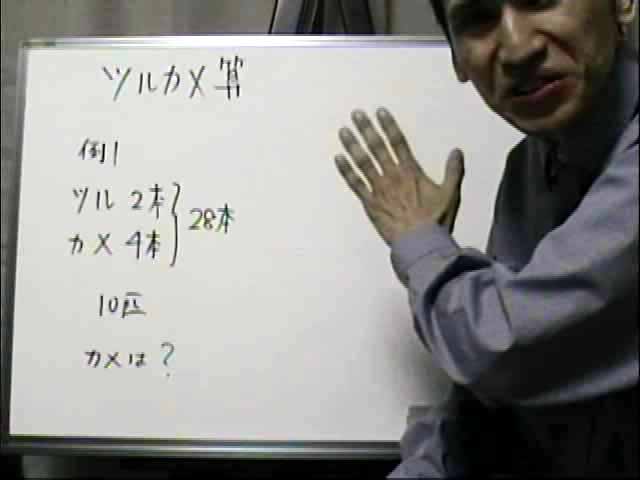 ツルカメ算
例1
ツル 2本
カメ 4本
28本
10匹
カメは?